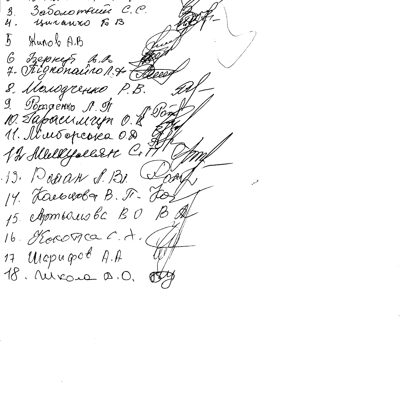 3. Заболотний С.С.
4. Цицанко Б В
5 Жилов А.В
6 Беркут А.А.
7. Підкопайло Л.А
8. Молодченко Р.В.
9. Роженко Л.П
10. Гарасимчук О.В
11. Лімборська О.Д
12 Мелкумян С.Н
13. Роман Л.Вл
14. Кольцова В.П.
15 Артьомова В О
16. Кокотса С.Х.
17 Шарифов А.А
18. Школа Д.О.